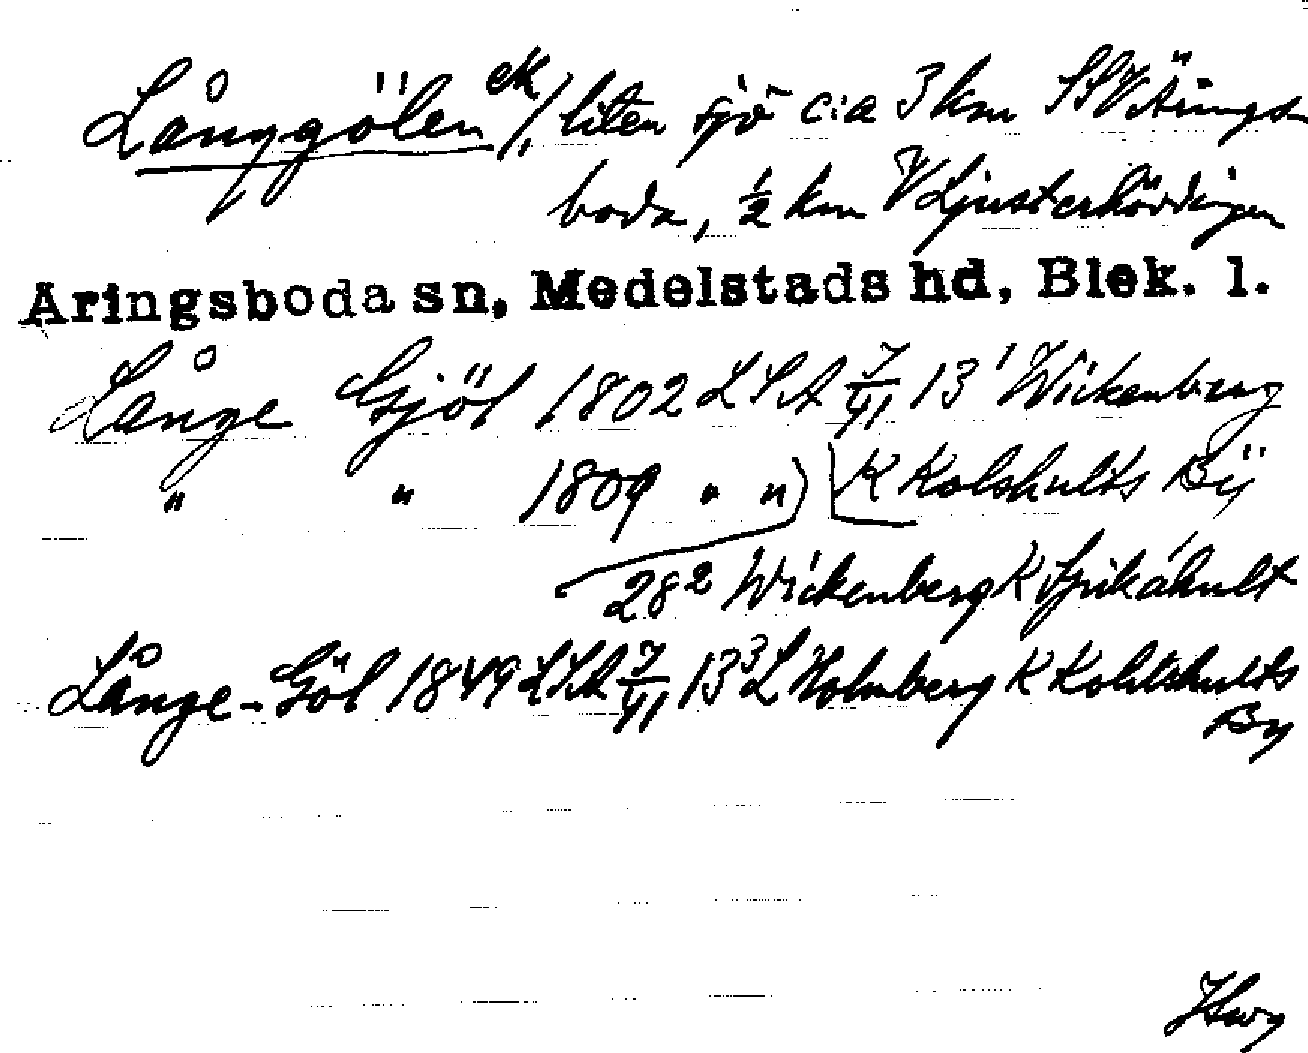 Långgölen ek/, liten sjö c:a 3 km SSV Årings-
boda, ½ km V Ljusterhövdingen
Aringsboda sn, Medelstads hd, Blek. l.
Långe Gjöl 1802 LSA 7/VI 13¹ Wickenberg
" " 1809 " ") K Kolshults Bÿ
28² Wickenberg K Spikáhult
Långe-Göl 1849 LSA 7/VI 13³ L Holmberg K Kohlshults
By